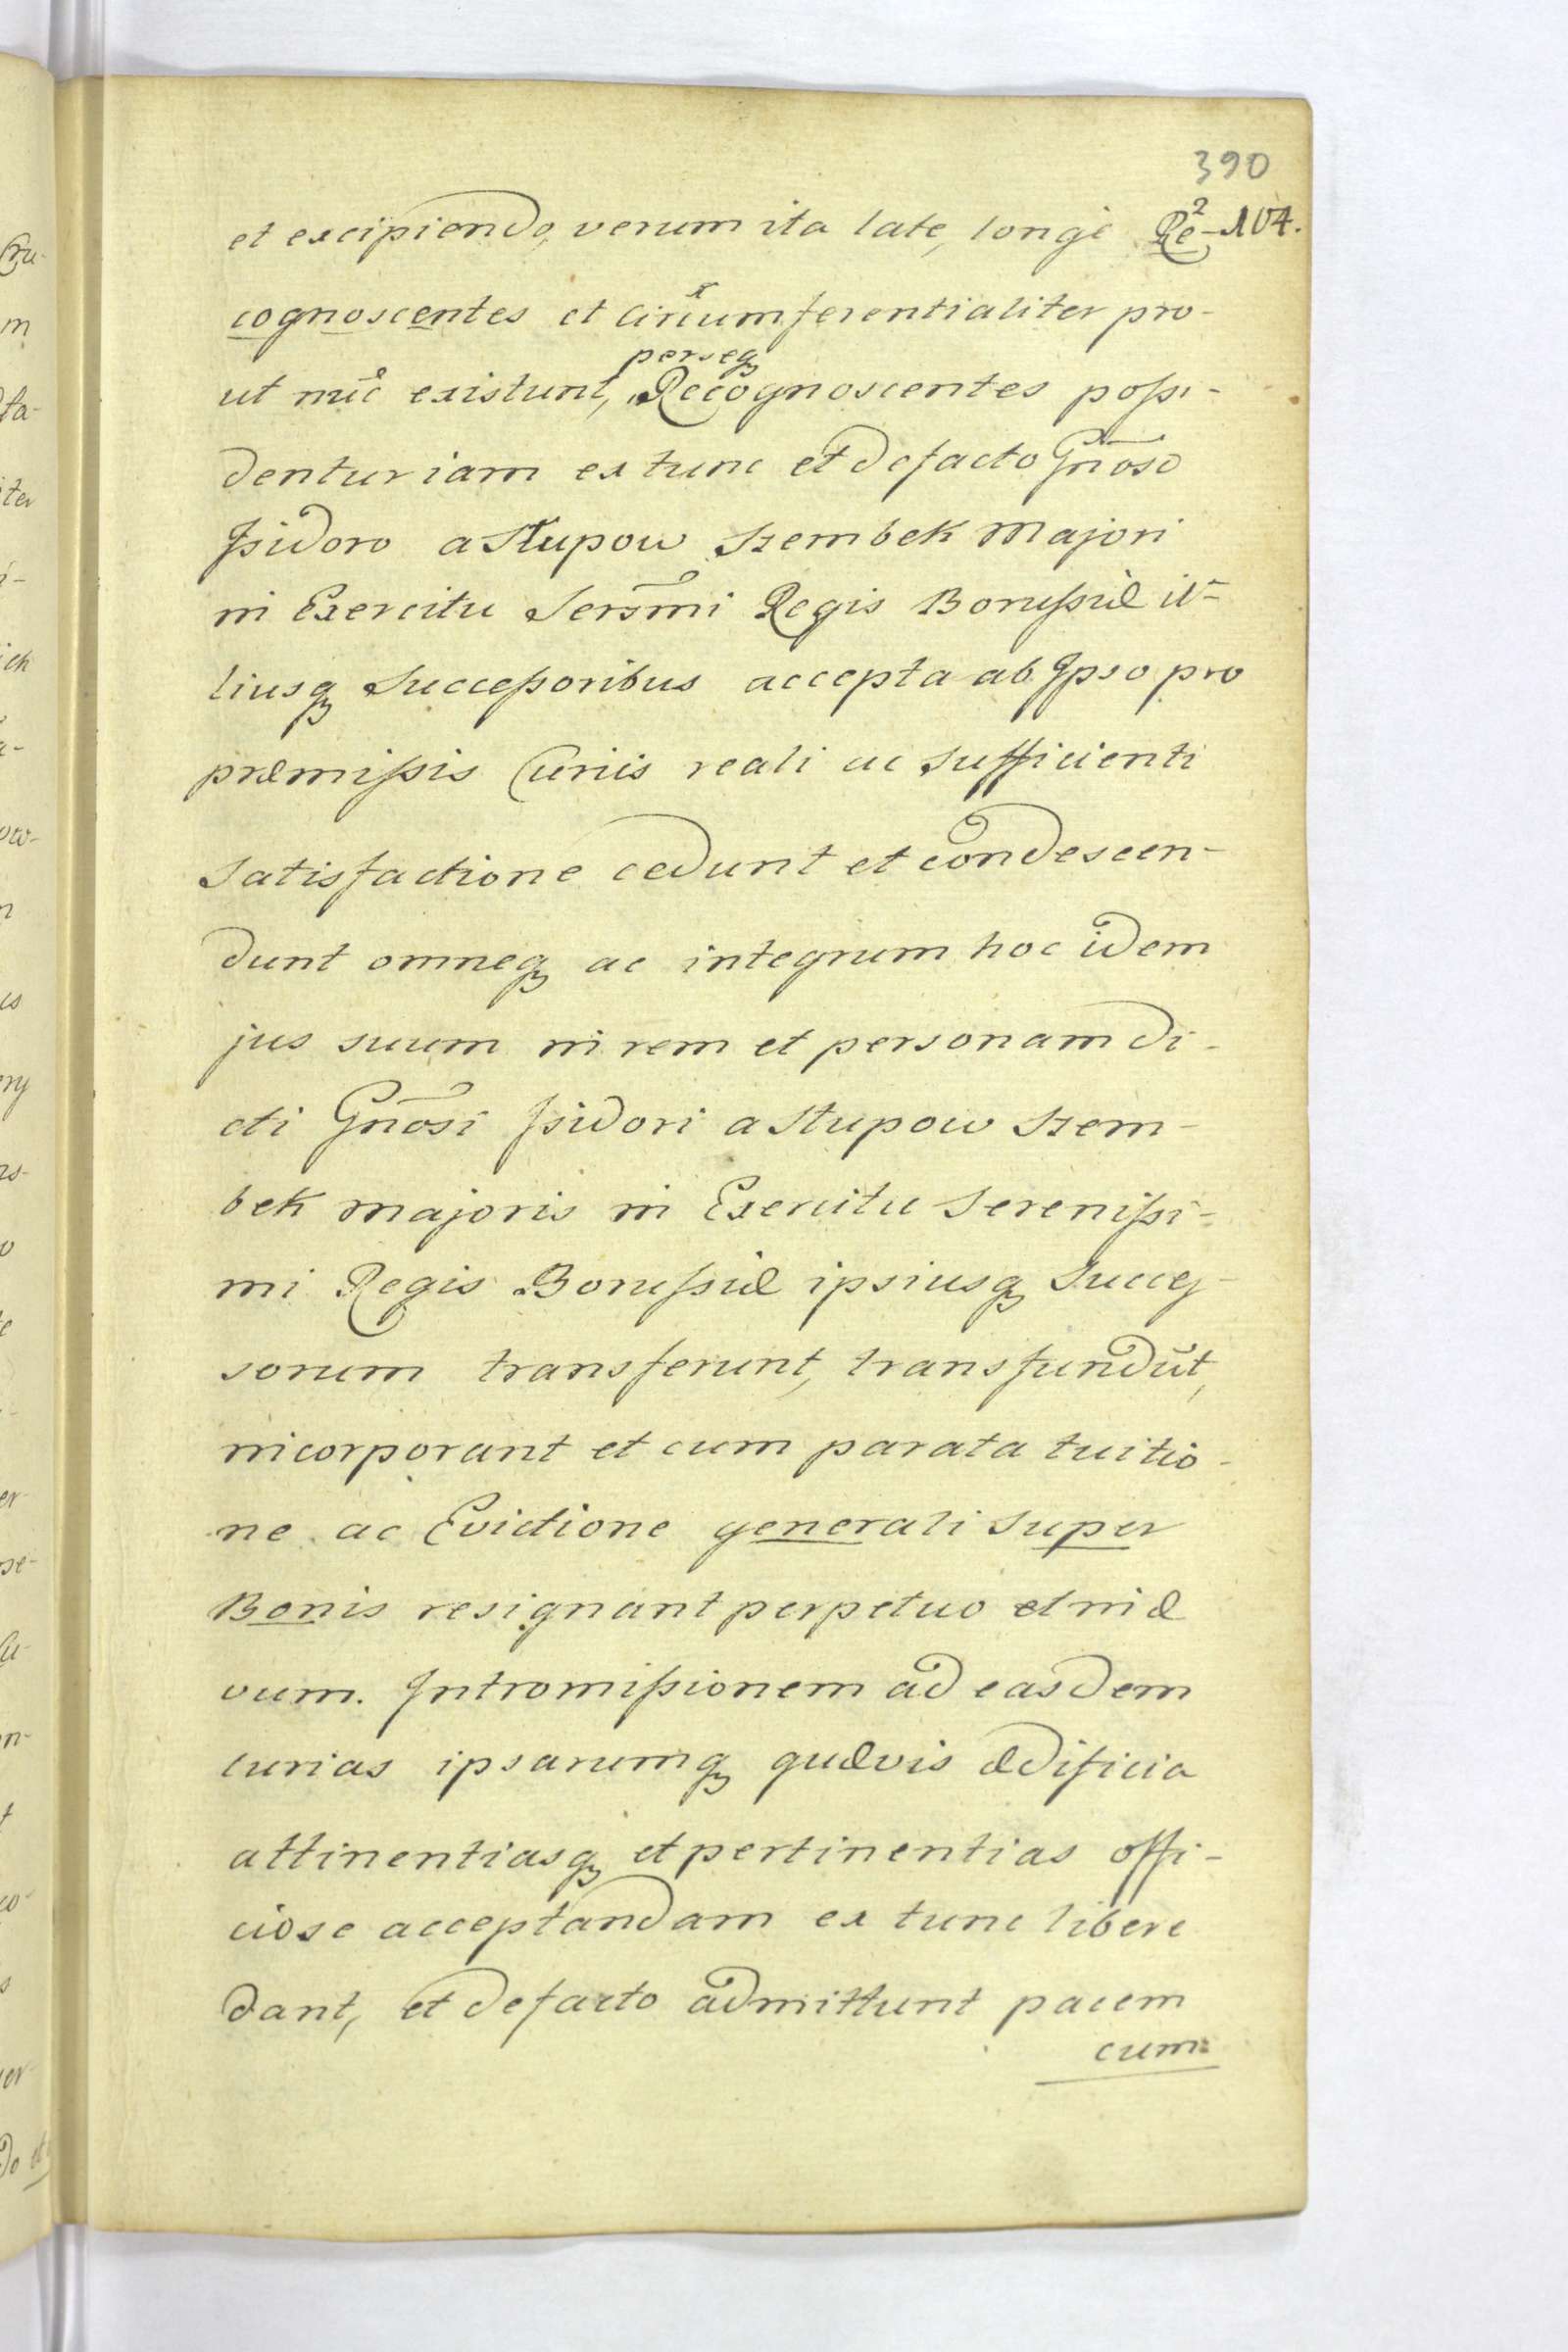 390
et excipiendo, verum ita late, longè Re²-104.
cognoscentes et circumferentialiter pro-
perseq
ut nūc existunt, Recognoscentes possi-
dentur iam ex tunc et defacto Gnōso
Isidoro a Stupow Szembek Majori
in Exercitu Sersm̄i Regis Borussiæ il-
liusq Successoribus accepta ab Ipso pro
præmissis Curiis reali ac sufficienti
satisfactione cedunt et condescen-
dunt omneq ac integrum hoc idem
jus suum in rem et personam di-
cti Gnōsi Isidori a Stupow Szem-
bek majoris in Exercitu Serenissi-
mi Regis Borussiæ ipsiusq Succes-
sorum transferunt, transfundūt,
incorporant et cum parata tuitio-
ne ac Evictione generali super
Bonis resignant perpetuo et in æ
vum. Intromissionem ad easdem
curias ipsarumq quævis ædificia
attinentiasq et pertinentias offi-
ciose acceptandam ex tunc libere
dant, et defacto admittunt pacem
cum